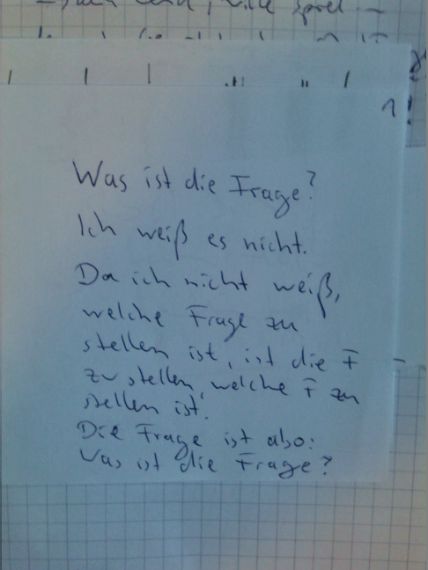 Was ist die Frage?
Ich weiß es nicht.
Da ich nicht weiß,
welche Frage zu
stellen ist, ist die F
zu stellen, welche F zu
stellen ist.
Die Frage ist also:
Was ist die Frage?